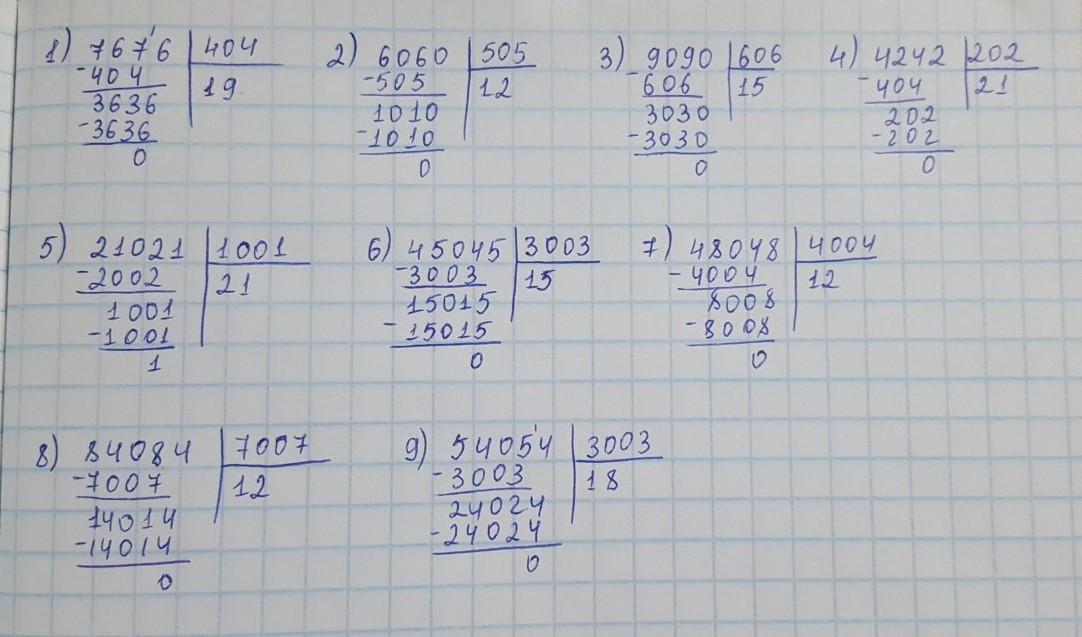 1) 7676 404
-404 19
3636
-3636
0
2) 6060 505
-505 12
1010
-1010
0
3) 9090 606
-606 15
3030
-3030
0
4) 4242 202
-404 21
202
-202
0
5) 21021 1001
-2002 21
1001
-1001
1
6) 45045 3003
-3003 15
15015
-15015
0
7) 48048 4004
-4004 12
8008
-8008
0
8) 84084 7007
-7007 12
14014
-14014
0
9) 54054 3003
-3003 18
24024
-24024
0